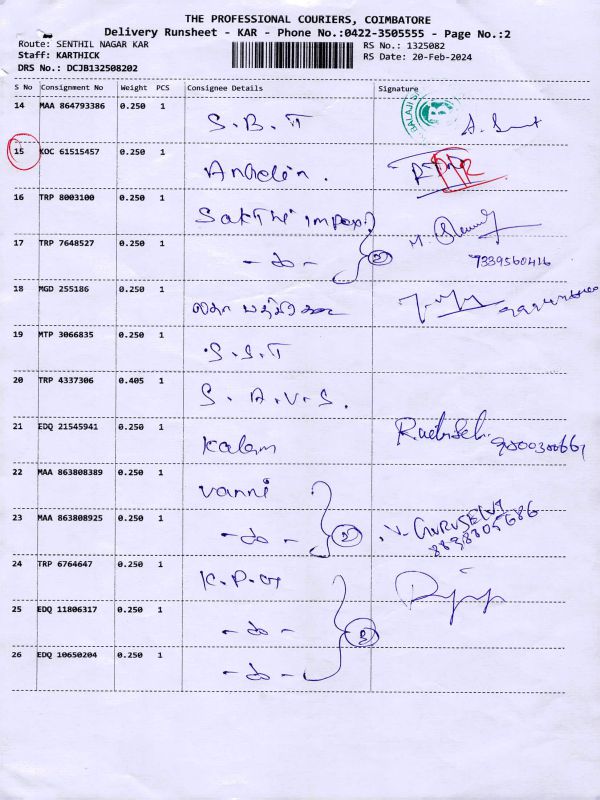 THE PROFESSIONAL COURIERS, COIMBATORE
Delivery Runsheet - KAR - Phone No.:0422-3505555 - Page No.:2
Route: SENTHIL NAGAR KAR RS No.: 1325082
Staff: KARTHICK RS Date: 20-Feb-2024
DRS No.: DCJB132508202
S No Consignment No Weight PCS Consignee Details Signature
14 MAA 864793386 0.250 1 S.B.T
BALAJI
15 KOC 61515457 0.250 1
16 TRP 8003100 0.250 1 Sakthi impex
17 TRP 7648527 0.250 1 -do- 2
7339560416
18 MGD 255186 0.250 1
19 MTP 3066835 0.250 1 S.S.T
20 TRP 4337306 0.405 1 S.A.V.S.
21 EDQ 21545941 0.250 1 Kalam
22 MAA 863808389 0.250 1 Vanni
23 MAA 863808925 0.250 1 -do- 2 V. GURUSELVI
8838805686
24 TRP 6764647 0.250 1 K.P.G
25 EDQ 11806317 0.250 1 -do- 3
26 EDQ 10650204 0.250 1 -do-